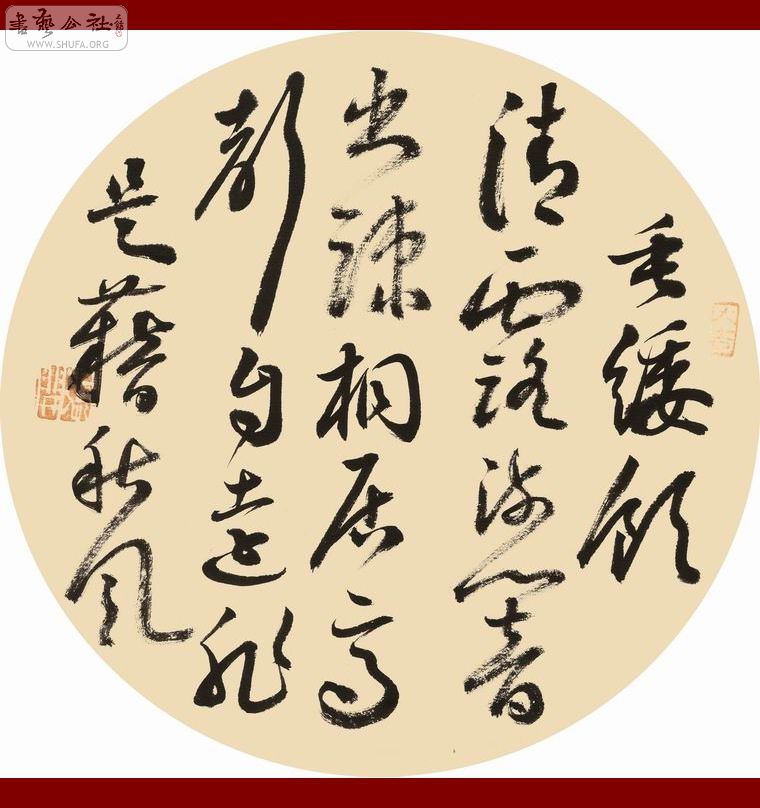 書藝公社
WWW.SHUFA.ORG
垂緌飲
清露流響
出疎桐居高
聲自遠非
是藉秋風